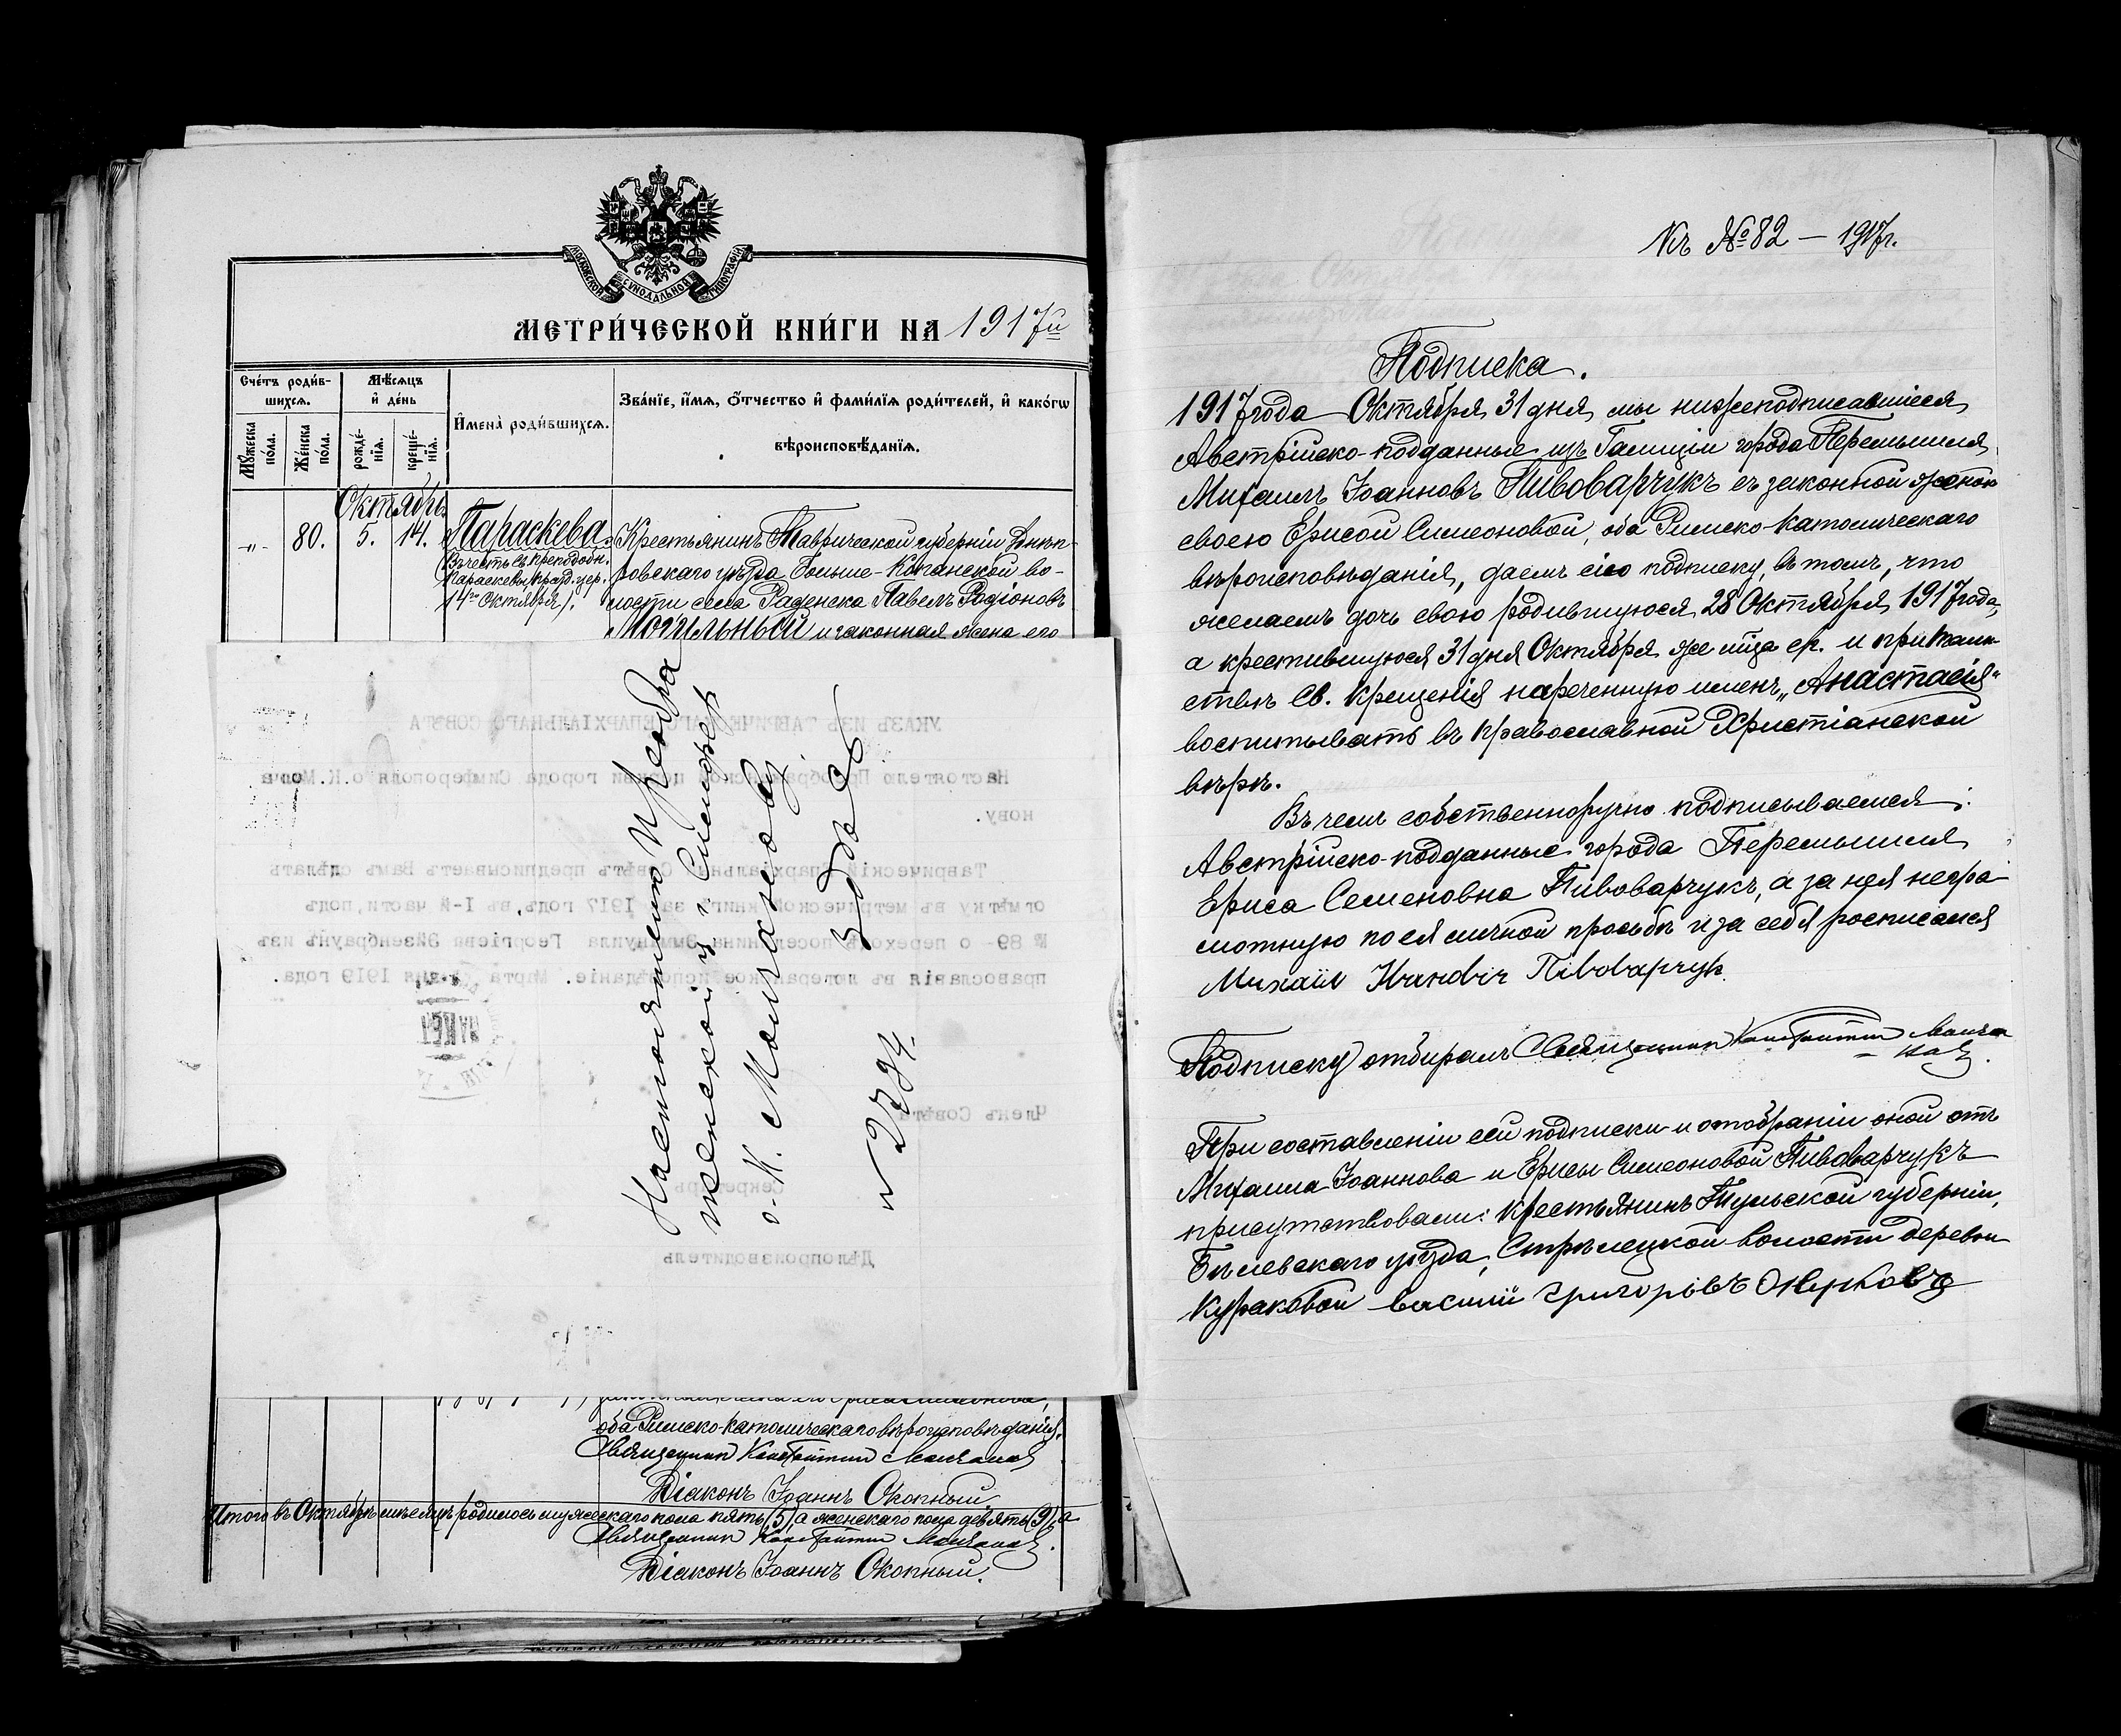 МОСКОВСКОЙ СѴНОДАЛЬНОЙ ТИПОГРАФІИ
МЕТРИ́ЧЕСКОЙ КНИ́ГИ НА 1917й
Сче́тъ роди́вшихсѧ.
Мѣ́сѧцъ и҆ де́нь
И҆мена̀ роди́вшихсѧ.
Зва́нїе, и҆́мѧ, ѻ҆́тчество и҆ фами́лїѧ роди́телей, и҆ како́гѡ
вѣроисповѣ́данїѧ.
Мꙋ́жеска по́ла.
Же́нска по́ла.
рожде́нїѧ.
креще́нїѧ.
Октябрь.
-„- 80. 5. 14. Параскева. Крестьянинъ Таврической губерніи Днѣп-
(въ честь св. преподобн.
Параскевы празд. цер.
14го Октября).
ровскаго уѣзда Больше-Копанской во-
лости села Раденска Павелъ Родіоновъ
Могильный и законная жена его
УКАЗЪ ИЗЪ ТАВРИЧЕСКАГО ЕПАРХІАЛЬНАГО СОВѢТА
Настоятелю Преображенской церкви города Симферополя о.К.Молча
нову.
Таврическій Епархіальный Совѣтъ предписываетъ Вамъ сдѣлать
отмѣтку въ метрической книгѣ за 1917 годъ, въ I-й части, подъ
№ 89- о переходѣ поселянина Эммануила Георгіева Эйзенбраунъ изъ
православія въ лютеранское исповѣданіе. Марта дня 1919 года.
Членъ Совѣта
Секретарь
Дѣлопроизводитель
Настоятелю Преобра
женской ц. г. Симфер
о. К. Молчанову
Здѣсь
№ 2794.
оба Римско-католическаго вѣроисповѣданія.
Священникъ Константинъ Молчановъ
Діаконъ Іоаннъ Окопный.
Итого въ Октябрѣ мѣсяцѣ родилось мужескаго пола пять (5), а женскаго пола девять (9), а
Священникъ Константинъ Молчановъ.
Діаконъ Іоаннъ Окопный.
Къ № 82 – 1917г.
Подписка.
1917 года Октября 31 дня, мы нижеподписавшіеся
Австрійско-подданные изъ Галиціи города Перемышля,
Михаилъ Іоанновъ Пивоварчукъ съ законной женой
своею Ерисой Симеоновой, оба Римско-Католическаго
вѣроисповѣданія, даемъ сію подписку, въ томъ, что
желаемъ дочь свою родившуюся 28 Октября 1917 года,
а крестившуюся 31 дня Октября же мѣца ср. и при таин-
ствѣ Св. Крещенія нареченную имень „Анастасія“
воспитывать въ православной Христіанской
вѣрѣ.
Въ чемъ собственноручно подписываемся:
Австрійско-подданные города Перемышля
Ериса Семеновна Пивоварчукъ, а за нея негра-
мотную по ея личной просьбѣ и за себя росписался
Михаіл Іванович Півоварчук.
Подписку отбиралъ Священникъ Константинъ Молча-
новъ.
При составленіи сей подписки и отобраніи оной отъ
Михаила Іоаннова и Ерисы Симеоновой Пивоварчукъ
присутствовали: крестьянинъ Тульской губерніи,
Бѣлевскаго уѣзда, Стрѣлецкой волости деревни
Кураковой василій григорівъ